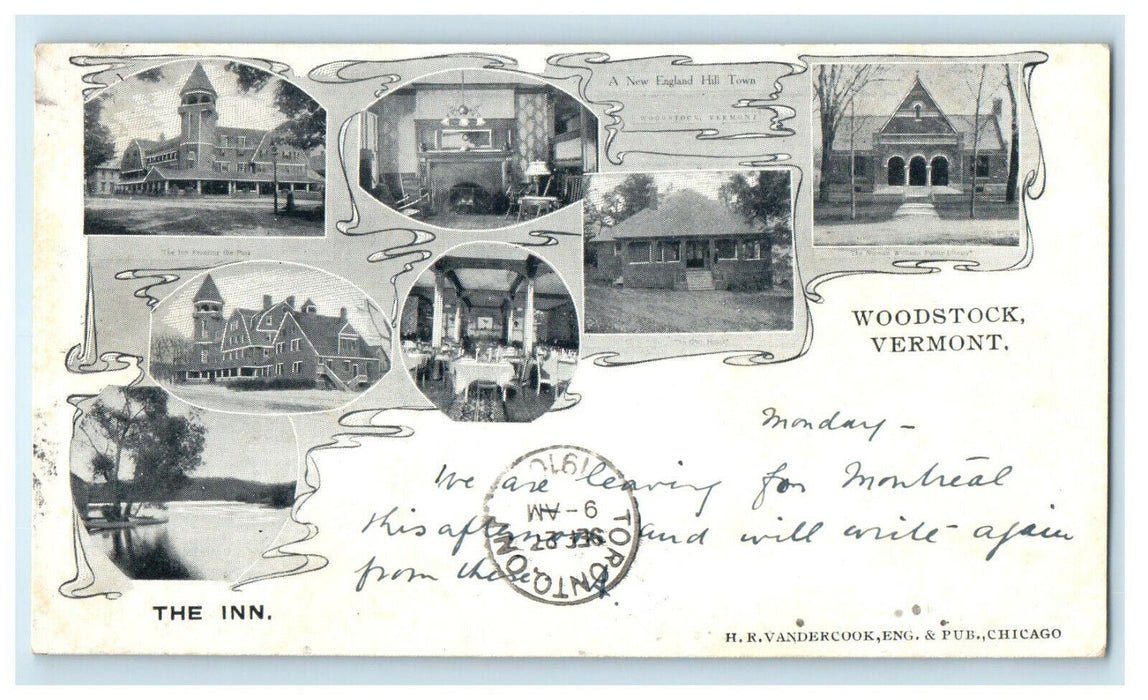 A New England Hill Town
WOODSTOCK, VERMONT
"The Inn Fronting the Park
"The Norman Williams Public Library"
WOODSTOCK,
VERMONT.
Monday –
We are leaving for Montréal
this afternoon and will write again
from there
TORONTO, ON
1910
9 – AM
SEP 27
THE INN.
H. R. VANDERCOOK, ENG. & PUB., CHICAGO